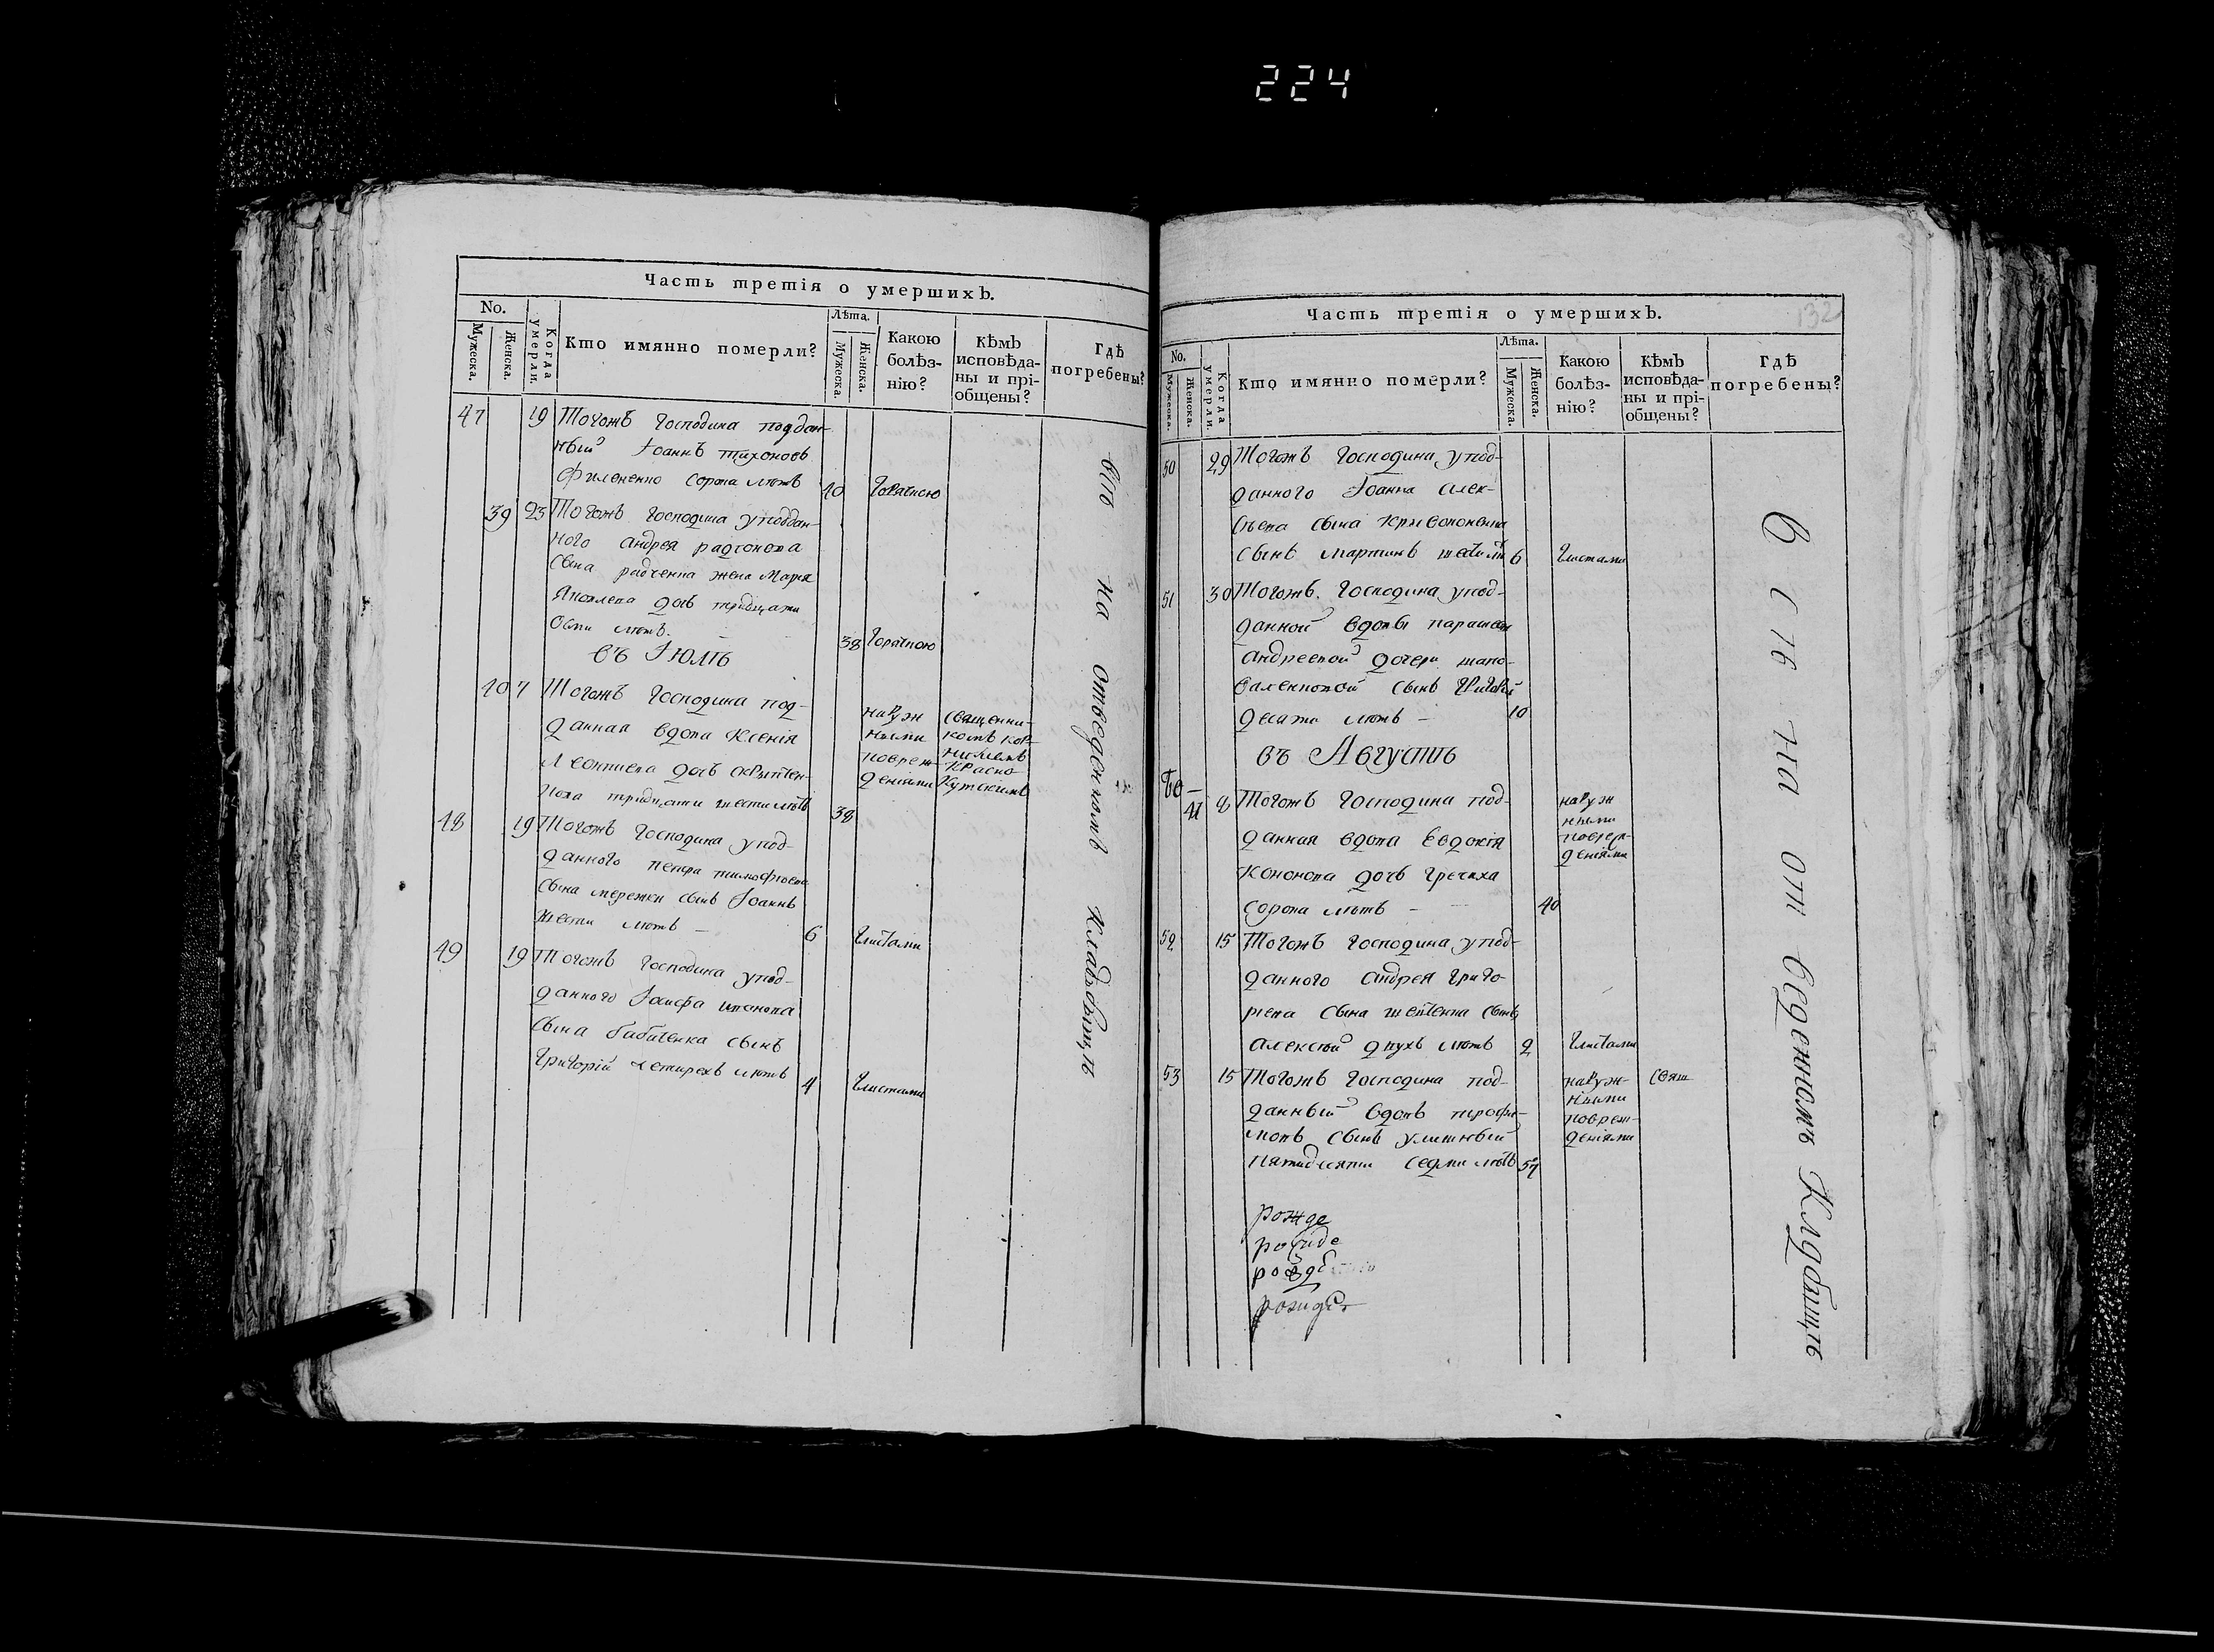 224
Часть третія о умершихъ.
No.
Мужеска.
Женска.
Когда умерли.
Кто имянно померли?
Лѣта.
Мужеска.
Женска.
Какою болѣз-
нію?
Кѣмъ
исповѣда-
ны и прі-
общены?
Гдѣ
погребены?
47 19 Тогожъ Господина поддан-
ный Іоаннъ тихоновъ
Филоненко сорока лѣтъ 40 Горячкою
39 23 Тогожъ Господина уподдан-
ного андрея радіонова
сына радченка жена Марія
Яковлева дочь тридцати
осми лѣтъ. 38 Горячкою
въ Іюлѣ
40 7 Тогожъ Господина под-
данная вдова Ксенія
Леонтиева дочь
тридцати лѣтъ 38
наруж
ными
повреж
деніями
священни-
комъ
Красно
Кутскимъ
48 19 Тогожъ Господина упод-
данного петра тимофѣева
сына мережки сынъ Іоаннъ
шести лѣтъ – 6 Глистами
49 19 Тогожъ Господина упод-
данного Іосифа иванова
сына бабиченка сынъ
Григорій четирехъ лѣтъ 4 Глистами
всѣ на отведенномъ кладъбищѣ
132
Часть третія о умершихъ.
No.
Мужеска.
Женска.
Когда умерли.
Кто имянно померли?
Лѣта.
Мужеска.
Женска.
Какою болѣз-
нію?
Кѣмъ
исповѣда-
ны и прі-
общены?
Гдѣ
погребены?
50 29 Тогожъ Господина упод-
данного Іоанна алек-
сѣева сына кривоконенка
сынъ мартинъ 6 Глистами
51 30 Тогожъ Господина упод-
данной вдовы
андреевой дочери шапо-
валенковой сынъ Григорій
десяти лѣтъ – 10
въ Августѣ
41 8 Тогожъ Господина под-
данная вдова Евдокія
кононова дочь Гречиха
сорока лѣтъ – 40
наруж
ными
повреж-
деніями
52 15 Тогожъ Господина упод-
данного андрея Григо-
риева сына сынъ
алексѣй двухъ лѣтъ 2 Глистами
53 15 Тогожъ Господина под-
данный вдовъ трофи-
мовъ сынъ улитный
пятидесяти седми лѣтъ 57
наруж-
ными
повреж-
деніями
свящ
рожде
всѣ на отведенномъ кладбищѣ